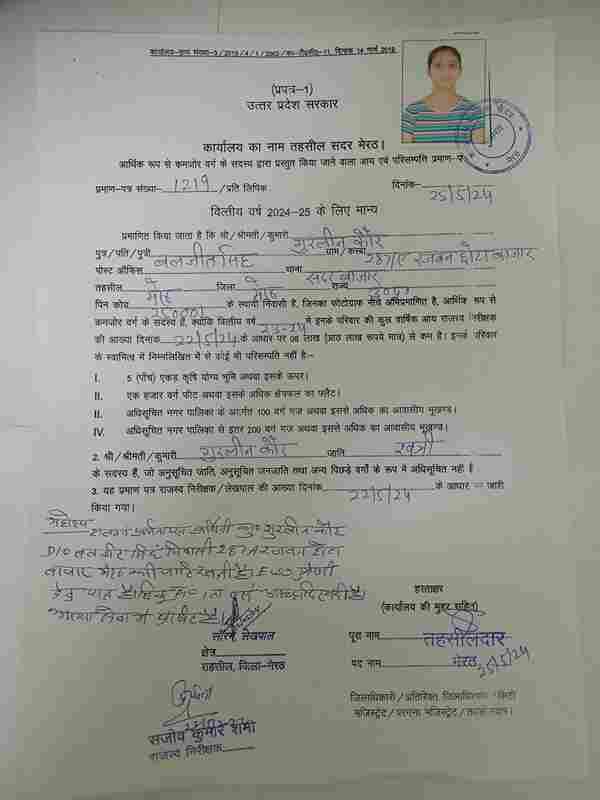 कार्यालय-ज्ञाप संख्या-3/2019/4/1/2002/का-2/19टी०सी०-11, दिनांक 14 मार्च 2019
(प्रपत्र-1)
उत्तर प्रदेश सरकार
कार्यालय का नाम तहसील सदर मेरठ।
आर्थिक रूप से कमजोर वर्ग के सदस्य द्वारा प्रस्तुत किया जाने वाला आय एवं परिसम्पत्ति प्रमाण-प
प्रमाण-पत्र संख्या- 1219 /प्रति लिपिक दिनांक- 25/5/24
वित्तीय वर्ष 2024-25 के लिए मान्य
प्रमाणित किया जाता है कि श्री/श्रीमती/कुमारी गुरलीन कौर
पुत्र/पति/पुत्री बलजीत सिंह ग्राम/कस्बा 287/ए रजबन छोटा बाजार
पोस्ट ऑफिस थाना सदर बाजार
तहसील मेरठ जिला मेरठ राज्य उ०प्र०
पिन कोड 250001 के स्थायी निवासी है, जिनका फोटोग्राफ नीचे अभिप्रमाणित है, आर्थिक रूप से
कमजोर वर्ग के सदस्य है, क्योंकि वित्तीय वर्ष 23-24 में इनके परिवार की कुल वार्षिक आय राजस्व निरीक्षक
की आख्या दिनांक 22/5/24 के आधार पर 08 लाख (आठ लाख रूपये मात्र) से कम है। इनके परिवार
के स्वामित्व में निम्नलिखित में से कोई भी परिसम्पत्ति नहीं है:-
I. 5 (पाँच) एकड़ कृषि योग्य भूमि अथवा इसके ऊपर।
II. एक हजार वर्ग फीट अथवा इससे अधिक क्षेत्रफल का फ्लैट।
III. अधिसूचित नगर पालिका के अंतर्गत 100 वर्ग गज अथवा इससे अधिक का आवासीय भूखण्ड।
IV. अधिसूचित नगर पालिका से इतर 200 वर्ग गज अथवा इससे अधिक का आवासीय भूखण्ड।
2. श्री/श्रीमती/कुमारी गुरलीन कौर जाति खत्री
के सदस्य हैं, जो अनुसूचित जाति, अनुसूचित जनजाति तथा अन्य पिछड़े वर्गों के रूप में अधिसूचित नहीं है
3. यह प्रमाण पत्र राजस्व निरीक्षक/लेखपाल की आख्या दिनांक 22/5/24 के आधार पर जारी
किया गया।
महोदय
कु० गुरलीन कौर
D/O बलजीत सिंह निवासी 287A रजबन छोटा
बाजार मेरठ की जाति खत्री है। EWS श्रेणी
हेतु पात्र है।
आख्या सेवा में प्रेषित है।
लेखपाल
क्षेत्र
तहसील, जिला-मेरठ
हस्ताक्षर
(कार्यालय की मुहर सहित)
पूरा नाम तहसीलदार
पद नाम मेरठ 25/5/24
जिलाधिकारी/अतिरिक्त जिलाधिकारी/सिटी
मजिस्ट्रेट/परगना मजिस्ट्रेट/तहसीलदार।
संजीव कुमार शर्मा
राजस्व निरीक्षक